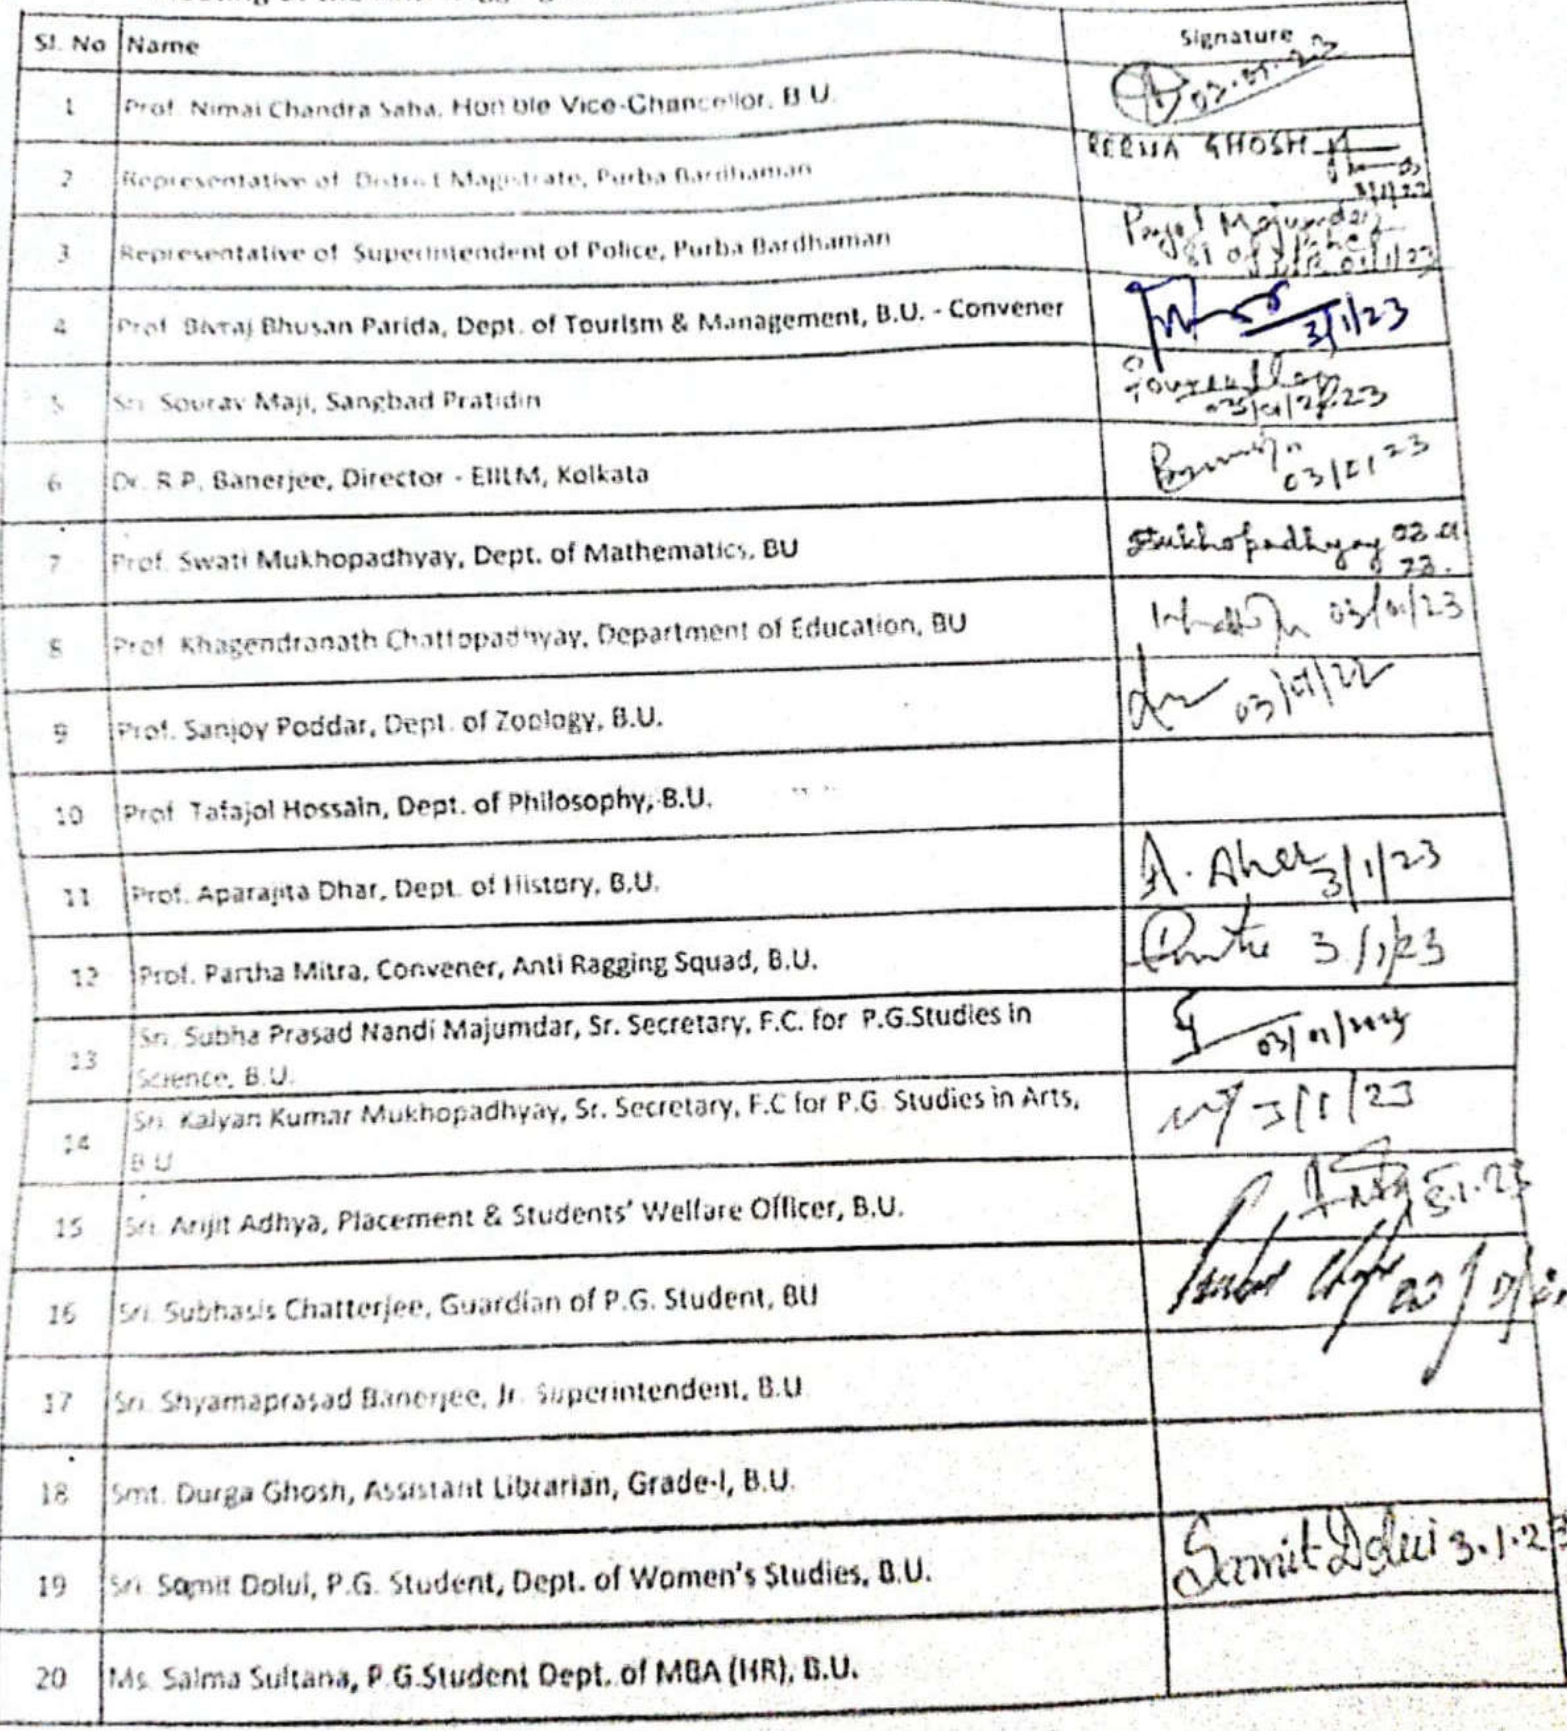 Sl. No Name Signature
1 Prof. Nimai Chandra Saha, Hon'ble Vice-Chancellor, B.U. 03.01.23
2 Representative of District Magistrate, Purba Bardhaman REENA GHOSH
3/1/23
3 Representative of Superintendent of Police, Purba Bardhaman Payel Majumdar
SI of
4 Prof. Bivraj Bhusan Parida, Dept. of Tourism & Management, B.U. - Convener 3/1/23
5 Sri. Sourav Maji, Sangbad Pratidin
6 Dr. R.P. Banerjee, Director - EIILM, Kolkata 03/01/23
7 Prof. Swati Mukhopadhyay, Dept. of Mathematics, BU SMukhopadhyay 03.01.
23.
8 Prof. Khagendranath Chattopadhyay, Department of Education, BU 03/01/23
9 Prof. Sanjoy Poddar, Dept. of Zoology, B.U. 03/01/22
10 Prof. Tafajol Hossain, Dept. of Philosophy, B.U.
11 Prof. Aparajita Dhar, Dept. of History, B.U. A. Dhar 3/1/23
12 Prof. Partha Mitra, Convener, Anti Ragging Squad, B.U. 3/1/23
13 Sri. Subha Prasad Nandi Majumdar, Sr. Secretary, F.C. for P.G.Studies in
Science, B.U. 03/01/2023
14 Sri. Kalyan Kumar Mukhopadhyay, Sr. Secretary, F.C for P.G. Studies in Arts,
B.U 3/1/23
15 Sri. Arijit Adhya, Placement & Students' Welfare Officer, B.U. 3.1.23
16 Sri. Subhasis Chatterjee, Guardian of P.G. Student, BU
17 Sri. Shyamaprasad Banerjee, Jr. Superintendent, B.U
18 Smt. Durga Ghosh, Assistant Librarian, Grade-I, B.U.
19 Sri. Somit Dolui, P.G. Student, Dept. of Women's Studies, B.U. Samit Dolui 3.1.23
20 Ms. Salma Sultana, P.G.Student Dept. of MBA (HR), B.U.